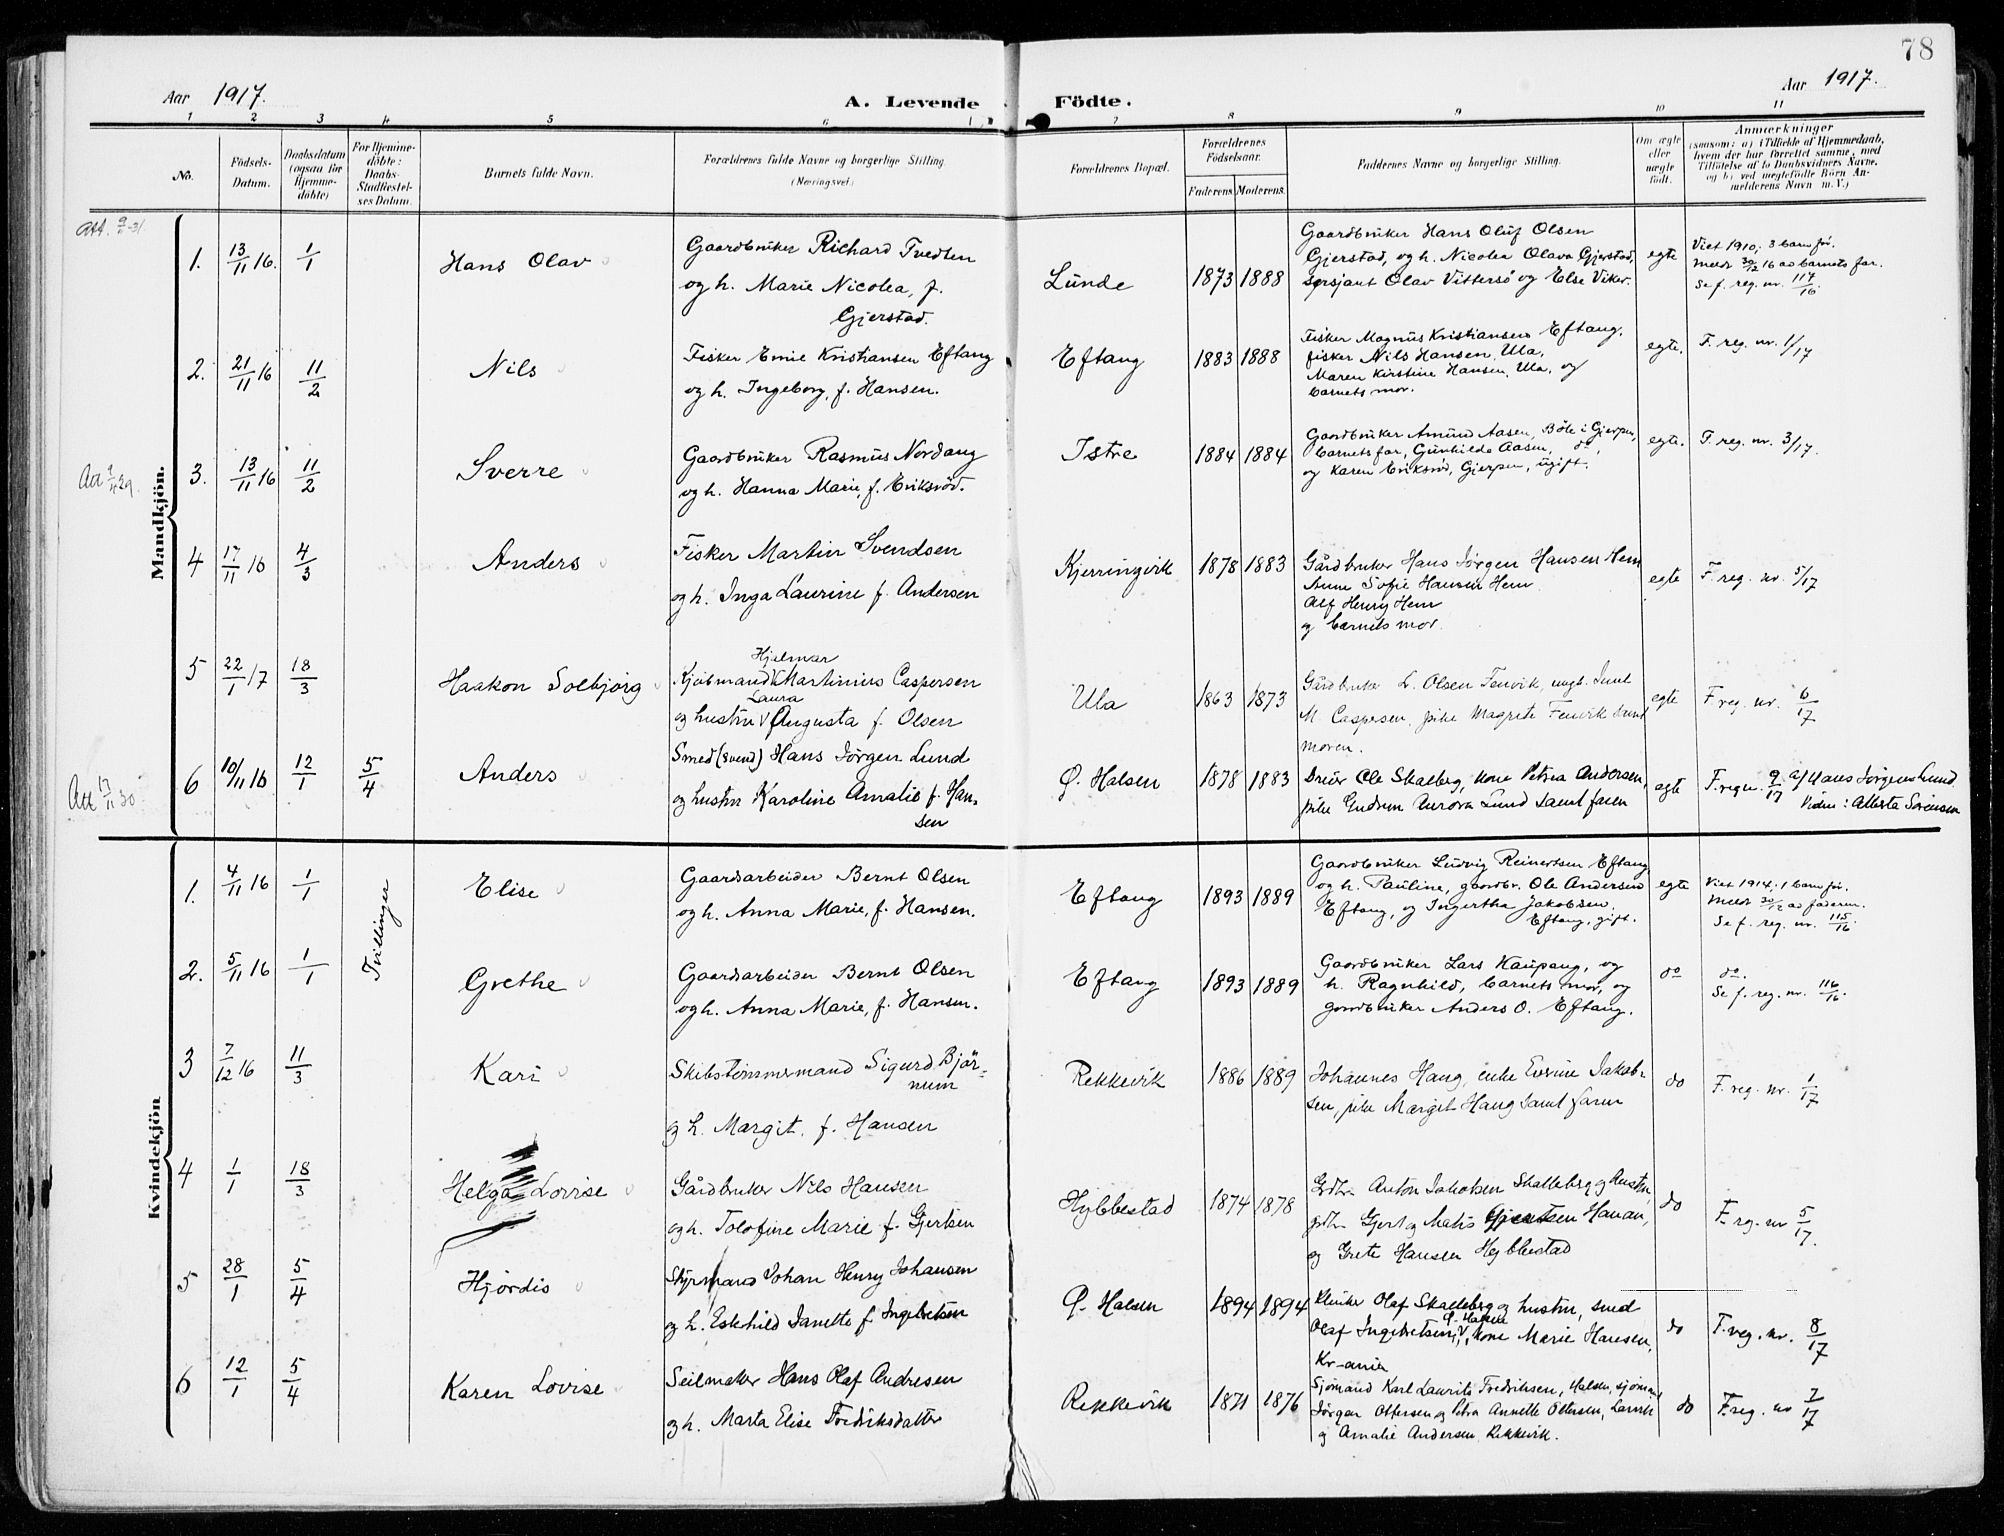 78
Aar 1917.
A. Levende Födte.
Aar 1917.
1 2 3 4 5 6 7 8 9 10 11
No.
Födsels-Datum.
Daabsdatum (ogsaa for Hjemmedöbte)
For Hjemmedöbte: Daabs-Stadfæstelses Datum.
Barnets fulde Navn.
Forældrenes fulde Navne og borgerlige Stilling. (Næringsvei)
Forældrenes Bopæl.
Forældrenes Födselsaar.
Faderens. Moderens.
Faddernes Navne og borgerlige Stilling.
Om ægte eller uægte födt.
Anmærkninger
(saasom: a) i Tilfælde af Hjemmedaab, hvem der har forrettet samme, med Tilföielse af to Daabsvidners Navne, og b) ved uegtefödte Börn Anmelderens Navn m. V.)
Mandkjön.
Att. 9/2-31
1. 13/11 16. 1/1 Hans Olav
Gaardbruker Richard Tvedten
og h. Marie Nicolea, f.
Gjerstad.
Lunde 1873 1888
Gaardbruker Hans Oluf Olsen
Gjerstad, og h. Nicolea Olava Gjerstad,
sersjant Olav Vittersö og Else Viker.
egte
Viet 1910; 3 barn för.
Meldt 30/12 16 av barnets far.
Se f. reg. nr. 117/16.
2. 21/11 16 11/2 Nils
Fisker Emil Kristiansen Eftang
og h. Ingeborg, f. Hansen.
Eftang 1883 1888
Fisker Magnus Kristiansen Eftang,
fisker Nils Hansen, Ula,
Maren Kirstine Hansen, Ula, og
barnets mor.
egte. F. reg. nr. 1/17
Att 9/4 29.
3. 13/11 16 11/2 Sverre
Gaardbruker Rasmus Nordang
og h. Hanna Marie, f. Eriksröd.
Istre 1884 1884
Gaardbruker Amund Aasen, Böle i Gjerpen,
barnets far, Gunhilde Aasen, do,
og Karen Eriksröd, Gjerpen, ugift.
egte. F. reg. nr. 3/17.
4 17/11 16 4/3 Anders
Fisker Martin Svendsen
og h. Inga Laurine f. Andersen
Kjerringvik 1878 1883
Gårdbruker Hans Jørgen Hansen Hem
Anne Sofie Hansen Hem
Alf Henry Hem
og barnets mor.
egte F. reg. nr. 5/17
5 22/1 17 18/3 Haakon Solbjörg
Hjalmar
Kjöbmand Martinius Caspersen
Laura
og hustru Augusta f. Olsen
Ula 1863 1873
Gårdbruker L. Olsen Fenvik, ungk. Emil
M. Caspersen, pike Magrete Fenvik samt
moren.
egte F. reg. nr. 6/17
Att 17/11 30
6 10/11 16 12/1 5/4 Anders
Smed (svend) Hans Jørgen Lund
og hustru Karoline Amalie f. Han-
sen
Ø. Halsen 1878 1883
Dreier Ole Skalberg, kone Petrea Andersen,
pike Gudrun Aurora Lund samt faren
egte F. reg nr. 9/17 af Hans Jörgens Lund
Viden: Alberta Sörensen
Kvindekjön
1. 4/11 16 1/1 Tvillinger Elise
Gaardsarbeider Bernt Olsen
og h. Anna Marie, f. Hansen.
Eftang 1893 1889
Gaardbruker Ludvig Reinertsen Eftang
og h. Pauline, gaardbr. Ole Andersen
Eftang, og Ingertha Jakobsen
Eftang, gift.
egte
Viet 1914; 1 barn för.
Meldt 30/12 av faderen.
Se f. reg. nr. 115/16.
2. 5/11 16 1/1 Grethe
Gaardsarbeider Bernt Olsen
og h. Anna Marie, f. Hansen.
Eftang 1893 1889
Gaardbruker Lars Kaupang, og
h. Ragnhild, barnets mor, og
gaardbruker Anders O. Eftang.
do do.
Se f. reg. nr. 116/16.
3 7/12 16 11/3 Kari
Skibstømmermand Sigurd Bjør-
num
og h. Margit, f. Hansen
Rekkevik 1886 1889
Johannes Haug, enke Evrine Jakob-
sen, pike Margit Haug samt faren
do F. reg. nr. 1/17
4 1/1 18/3 Helga Lovise
Gårdbruker Nils Hansen
og h. Tolofine Marie f. Gjertsen
Hybbestad 1874 1878
Grdbr. Anton Jakobsen Skalleberg og hustru,
grdbr. Gjert og Matis Gjertsen Hauan,
og Grete Hansen Hybbestad
do F. reg. nr 5/17.
5 28/1 5/4 Hjördis
Styrmand Johan Henry Johansen
og h. Eskhild Janette f. Ingebretsen
Ø. Halsen 1894 1894
Klinker Olaf Skalleberg og hustru, smed
Ø. Halsen
Olaf Ingebretsen, kone Marie Hansen,
Kr-ania
do F. reg. nr. 8/17
6 12/1 5/4 Karen Lovise
Seilmaker Hans Olaf Andresen
og h. Marta Elise Fredriksdatter
Rekkevik 1871 1876
Sjømand Karl Laurits Fredriksen, Halsen, sjømand
Jörgen Ottersen og Petra Annette Ottersen, Larvik
og Amalie Andersen Rekkevik.
do F. reg. nr 7/17